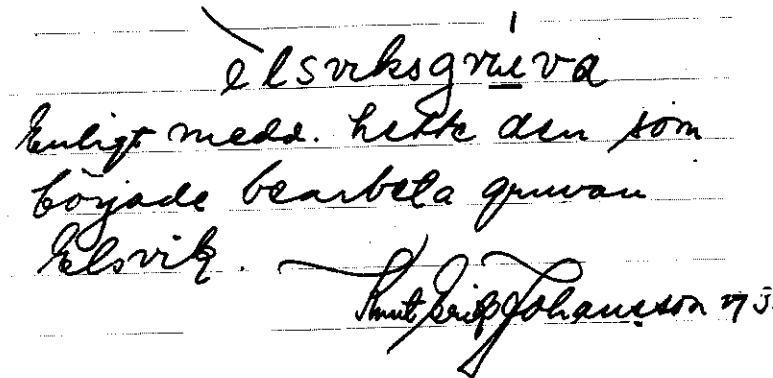 èlsviksgru̲va
Enligt medd. hette den som
började bearbeta gruvan
Elsvik.
Knut Erik Johansson